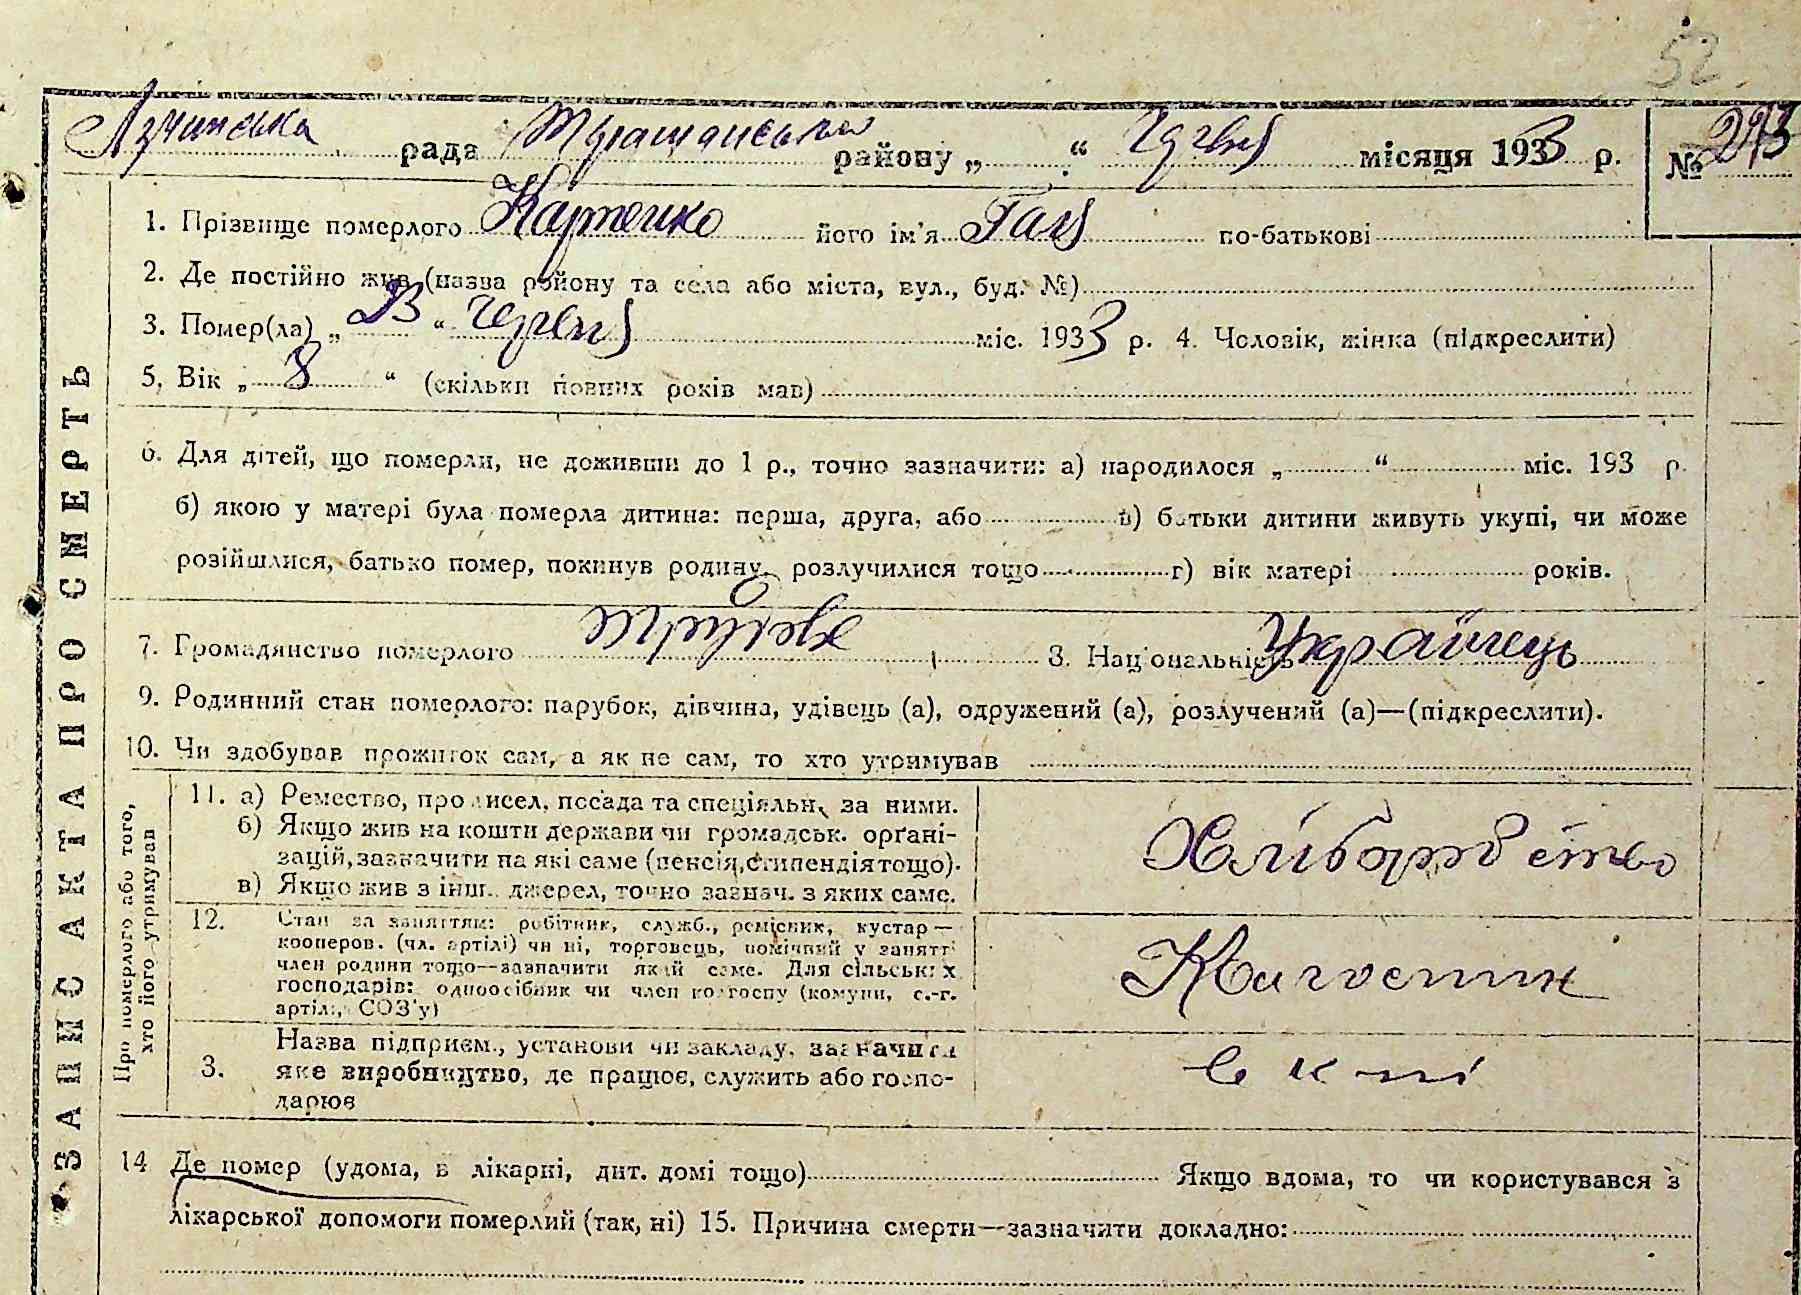 52
Лучинська рада Таращанського району „ “ Червня місяця 1933 р. № 293
1. Прізвище померлого Карпенко його ім'я по-батькові
2. Де постійно жив (назва району та села або міста, вул., буд. №)
3. Помер(ла) „ 23 “ Червня міс. 1933 р. 4. Чоловік, жінка (підкреслити)
5. Вік „ 8 “ (скільки повних років мав)
6. Для дітей, що померли, не доживши до 1 р., точно зазначити: а) народилося „ “ міс. 193 р.
б) якою у матері була померла дитина: перша, друга, або в) батьки дитини живуть укупі, чи може
розійшлися, батько помер, покинув родину, розлучилися тощо г) вік матері років.
7. Громадянство померлого 8. Національність Українець
9. Родинний стан померлого: парубок, дівчина, удівець (а), одружений (а), розлучений (а)—(підкреслити).
10. Чи здобував прожиток сам, а як не сам, то хто утримував
ЗАПИС АКТА ПРО СМЕРТЬ
Про померлого або того,
хто його утримував
11. а) Ремество, промисел, посада та спеціяльн. за ними.
б) Якщо жив на кошти держави чи громадськ. орґані-
зацій, зазначити на які саме (пенсія, стипендія тощо).
в) Якщо жив з інш. джерел, точно зазнач. з яких саме.
Хліборобство
12. Стан за заняттям: робітник, служб., ремісник, кустар—
кооперов. (чл. артілі) чи ні, торговець, помічний у занятті
член родини тощо—зазначити який саме. Для сільських
господарів: одноосібник чи член колгоспу (комуни, с.-г.
артілі, СОЗ'у)
3. Назва підприєм., установи чи закладу, зазначити
яке виробництво, де працює, служить або госпо-
дарює
14 Де помер (удома, в лікарні, дит. домі тощо) Якщо вдома, то чи користувався з
лікарської допомоги померлий (так, ні) 15. Причина смерти—зазначити докладно: